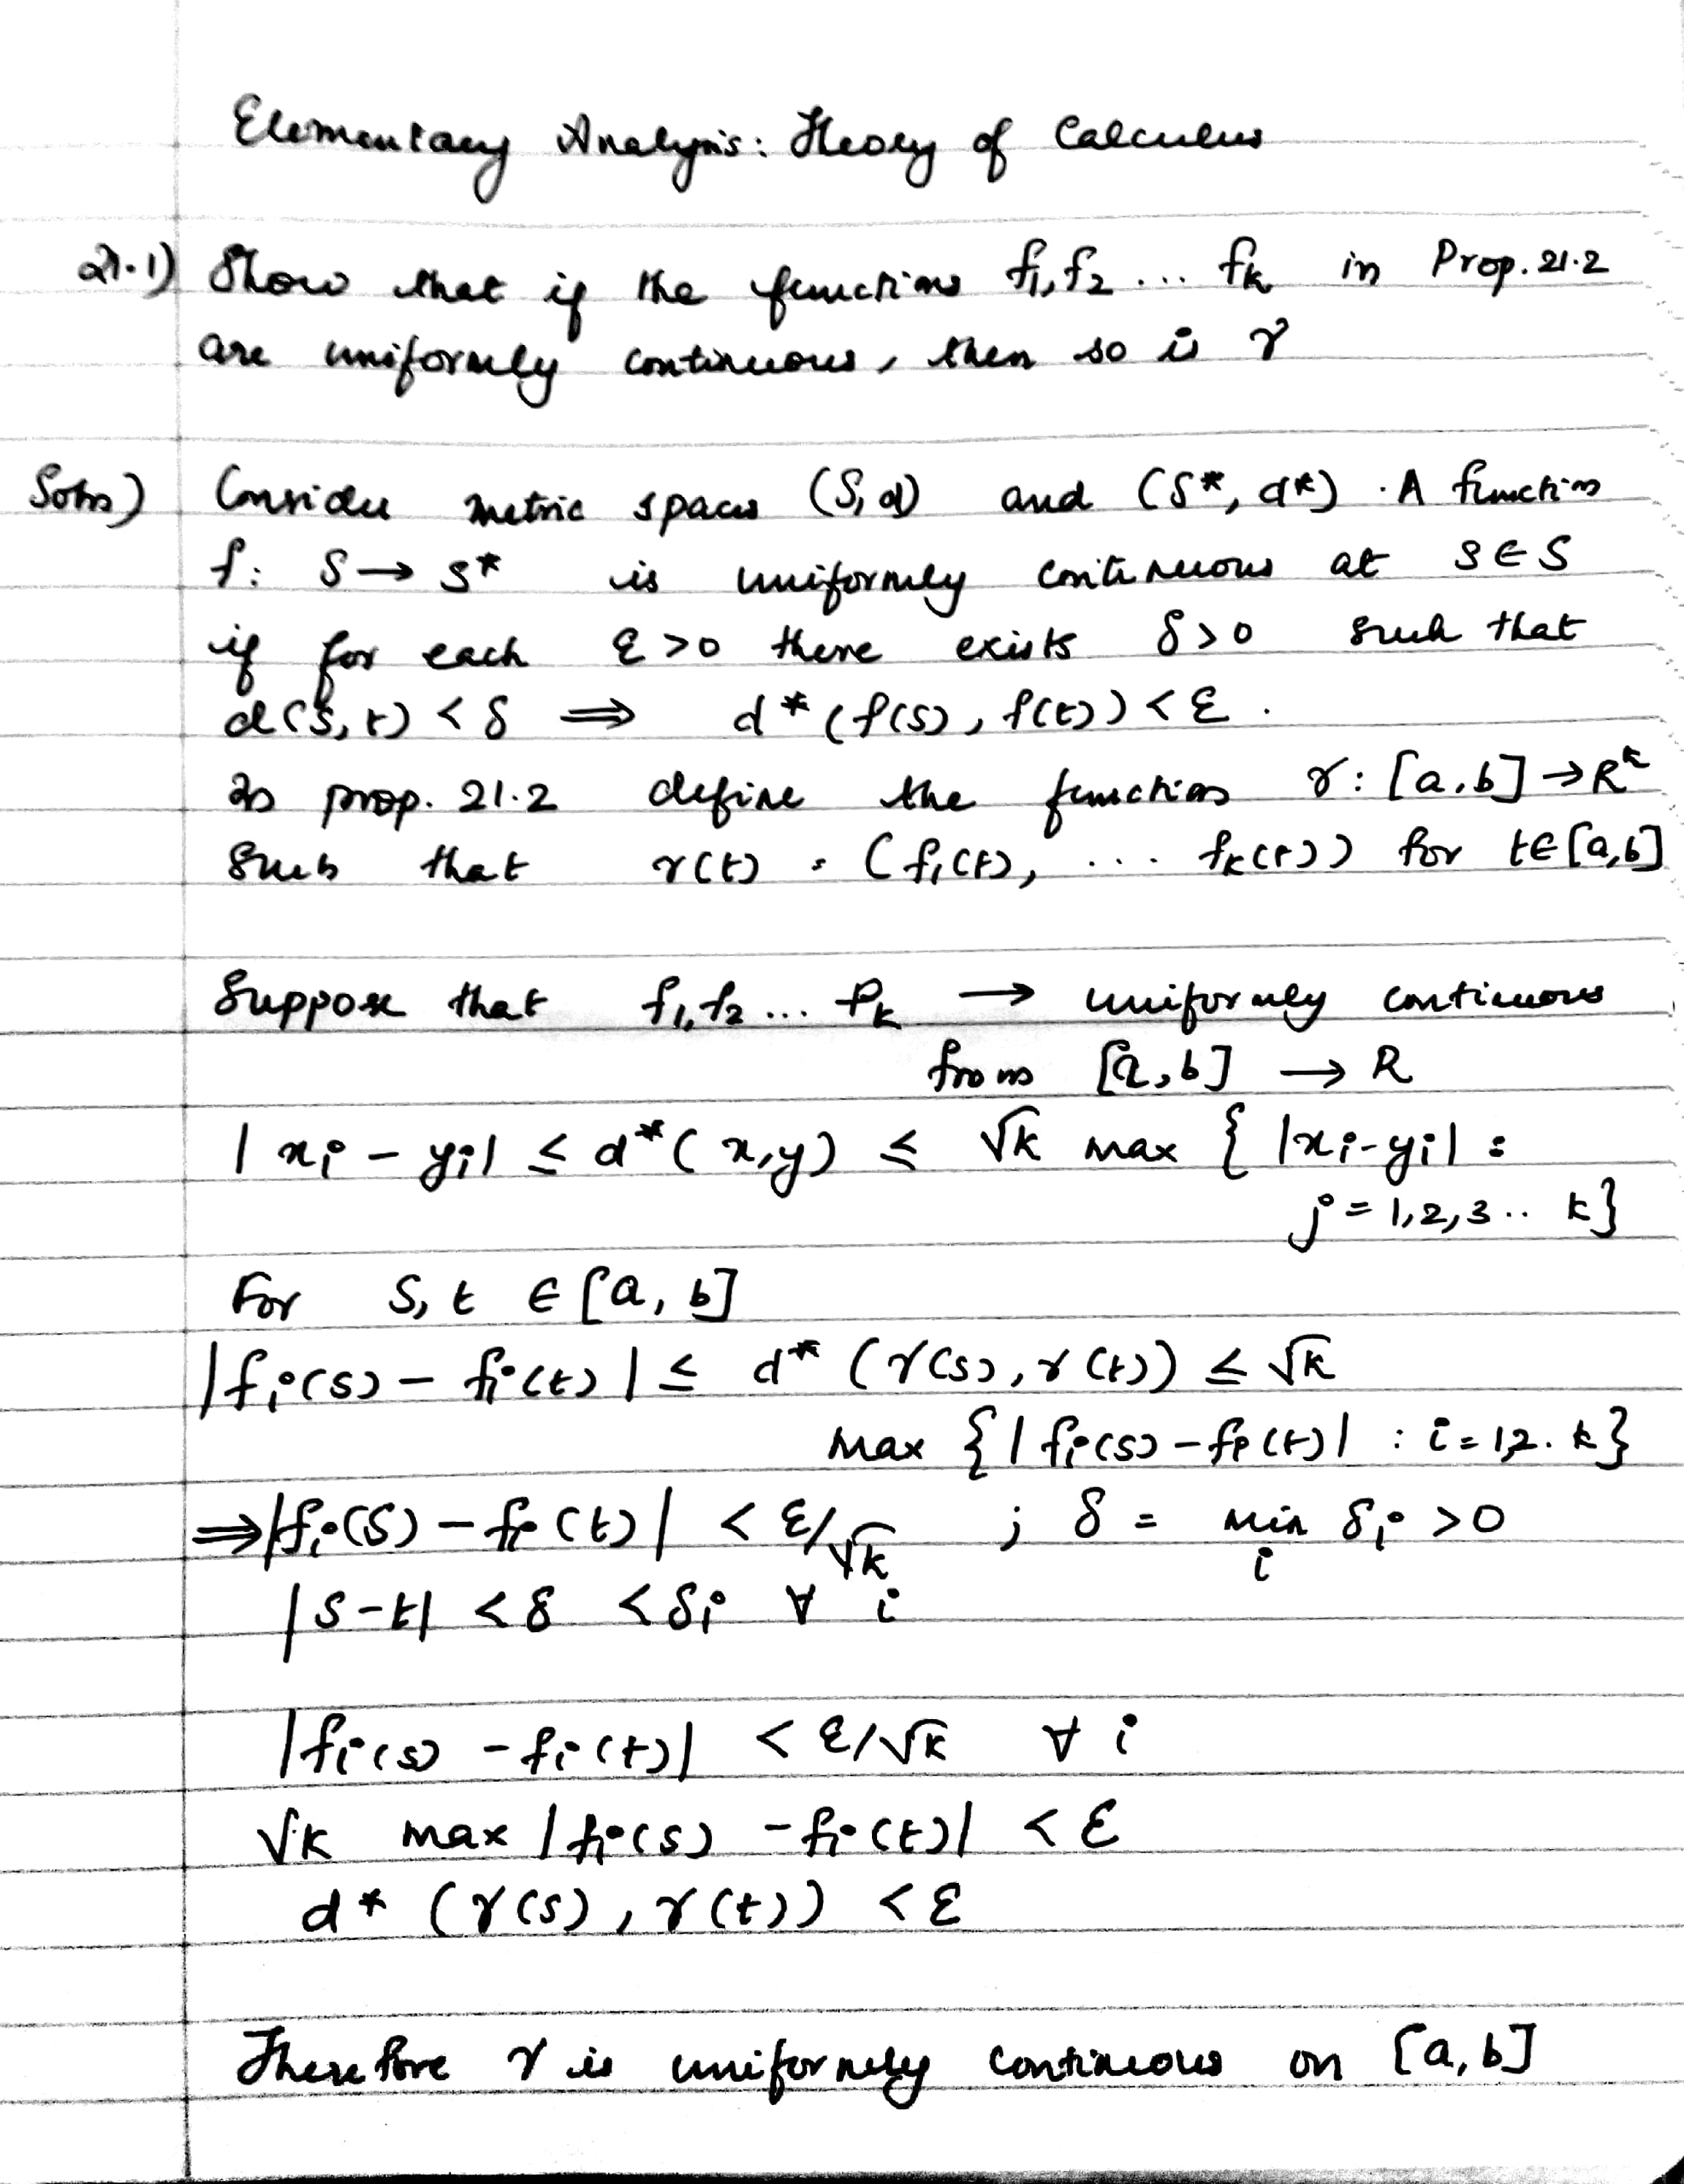 Elementary Analysis: Theory of Calculus
21.1) Show that if the functions f1, f2 ... fk in Prop. 21.2
are uniformly continuous, then so is γ
Soln) Consider metric spaces (S, d) and (S*, d*). A function
f: S → S* is uniformly continuous at s ∈ S
if for each ε > 0 there exists δ > 0 such that
d(s, t) < δ ⟹ d*(f(s), f(t)) < ε.
In prop. 21.2 define the function γ: [a, b] → R^k
such that γ(t) = (f1(t), ... fk(t)) for t ∈ [a, b]
Suppose that f1, f2 ... fk → uniformly continuous
from [a, b] → R
|xi - yi| ≤ d*(x, y) ≤ √k max { |xi - yi| :
j = 1, 2, 3 .. k}
For s, t ∈ [a, b]
|fi(s) - fi(t)| ≤ d* (γ(s), γ(t)) ≤ √k
max { |fi(s) - fi(t)| : i = 1,2. k}
⟹ |fi(s) - fi(t)| < ε/√k ; δ = min δi > 0
i
|s - t| < δ < δi ∀ i
|fi(s) - fi(t)| < ε/√k ∀ i
√k max |fi(s) - fi(t)| < ε
d* (γ(s), γ(t)) < ε
Therefore γ is uniformly continuous on [a, b]